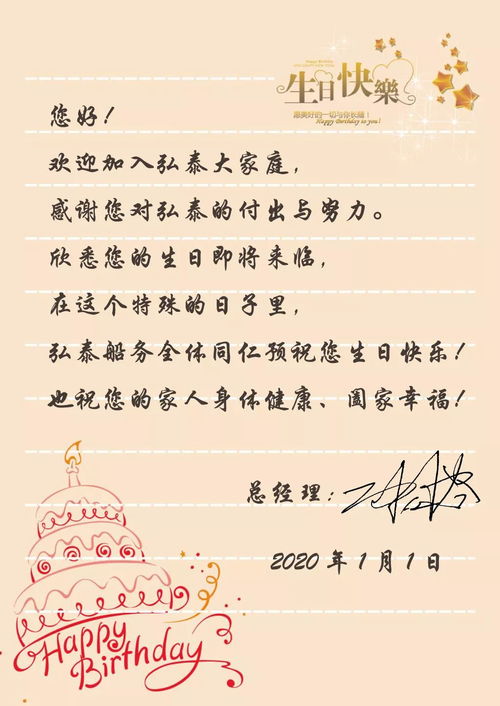 生日快樂
Happy Birthday to you!
您好!
欢迎加入弘泰大家庭,
感谢您对弘泰的付出与努力。
欣悉您的生日即将来临,
在这个特殊的日子里,
弘泰船务全体同仁预祝您生日快乐!
也祝您的家人身体健康、阖家幸福!
总经理:
2020年1月1日
Happy
Birthday